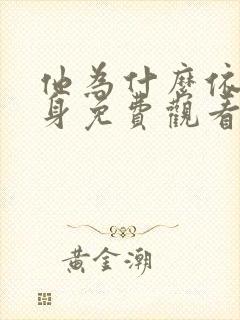 他為什麼依
身免費觀看
黃金潮